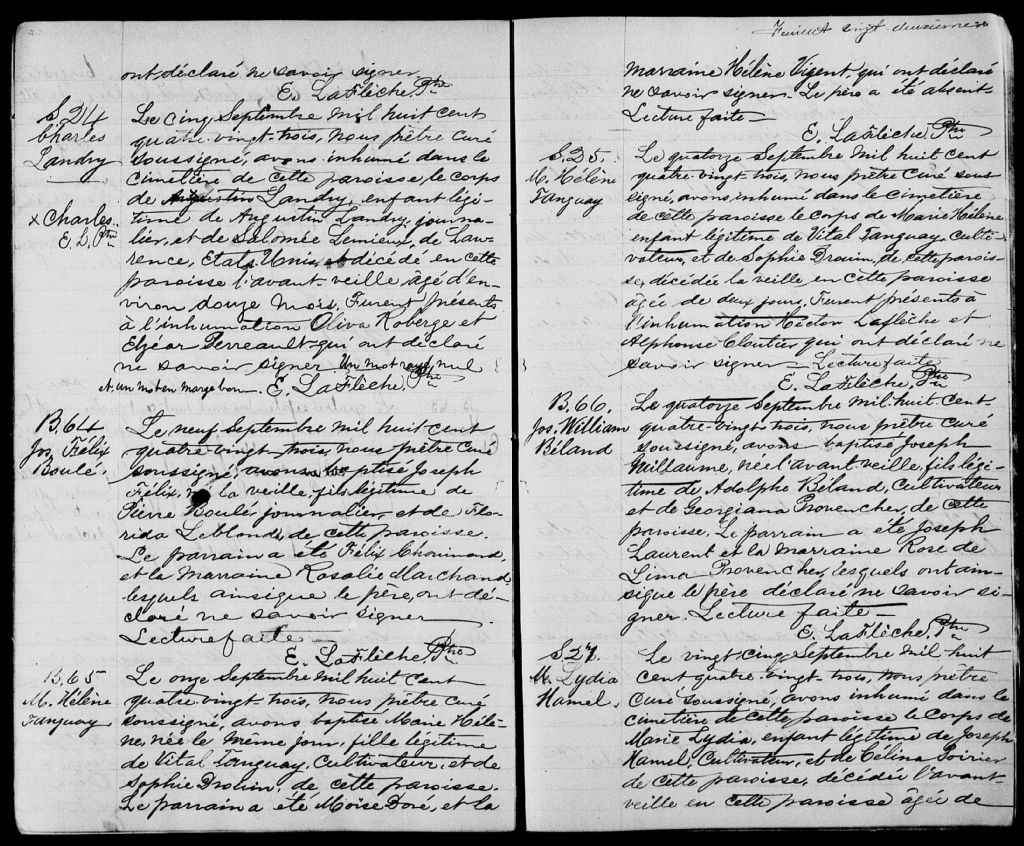 ont déclaré ne savoir signer
E. LaFlèche, Ptre
S. 24
Charles
Landry
Le cinq Septembre mil huit cent
quatre-vingt-trois, nous prêtre curé
soussigné, avons inhumé dans le
cimetière de cette paroisse le corps
de Augustin Landry, enfant légi-
time de Augustin Landry, journa-
x Charles
E. L. Ptre
lier, et de Salomée Lemieux, de Law-
rence, Etats-Unis, et décédé en cette
paroisse l'avant-veille âgé d'en-
viron douze mois. Furent présents
à l'inhumation Oliva Roberge et
Elzéar Perreault qui ont déclaré
ne savoir signer. Un mot rayé nul
et un mot en marge bon. E. LaFlèche, Ptre
B. 64
Jos. Félix
Boulé.
Le neuf Septembre mil huit cent
quatre-vingt-trois, nous prêtre curé
soussigné, avons baptisé Joseph
Félix, né la veille, fils légitime de
Pierre Boulé, journalier, et de Flo-
rida Leblond, de cette paroisse.
Le parrain a été Félix Chouinard
et la Marraine Rosalie Marchand,
lesquels ainsi que le père, ont dé-
claré ne savoir signer
Lecture faite
E. LaFlèche, Ptre
B. 65
M. Hélène
Tanguay
Le onze Septembre mil huit cent
quatre-vingt-trois, nous prêtre curé
soussigné, avons baptisé Marie Hélè-
ne, née le même jour, fille légitime
de Vital Tanguay, Cultivateur, et de
Sophie Drouin, de cette paroisse.
Le parrain a été Moïse Doré, et la
Feuillet vingt deuxième
marraine Hélène Vigent, qui ont déclaré
ne savoir signer. Le père a été absent
Lecture faite
E. LaFlèche, Ptre
S. 25.
M. Hélène
Tanguay
Le quatorze Septembre mil huit cent
quatre-vingt-trois, nous prêtre curé sous-
signé, avons inhumé dans le cimetière
de cette paroisse le corps de Marie Hélène
enfant légitime de Vital Tanguay, Culti-
vateur, et de Sophie Drouin, de cette parois-
se, décédée la veille en cette paroisse
âgée de deux jours. Furent présents à
l'inhumation Hector Laflèche et
Alphonse Cloutier qui ont déclaré ne
savoir signer - Lecture faite
E. LaFlèche, Ptre
B. 66.
Jos. William
Béland
Le quatorze Septembre mil huit cent
quatre-vingt-trois, nous prêtre curé
soussigné, avons baptisé Joseph
Guillaume, né l'avant veille, fils légi-
time de Adolphe Béland, Cultivateur
et de Georgiana Provencher, de cette
paroisse. Le parrain a été Joseph
Laurent et la Marraine Rose de
Lima Provencher, lesquels ont ain-
si que le père déclaré ne savoir si-
gner. Lecture faite
E. LaFlèche, Ptre
S. 27.
M. Lydia
Hamel.
Le vingt cinq Septembre mil huit
cent quatre-vingt-trois, nous prêtre
Curé soussigné, avons inhumé dans le
cimetière de cette paroisse le corps de
Marie Lydia, enfant légitime de Joseph
Hamel, Cultivateur, et de Célina Poirier
de cette paroisse, décédée l'avant-
veille en cette paroisse âgée de